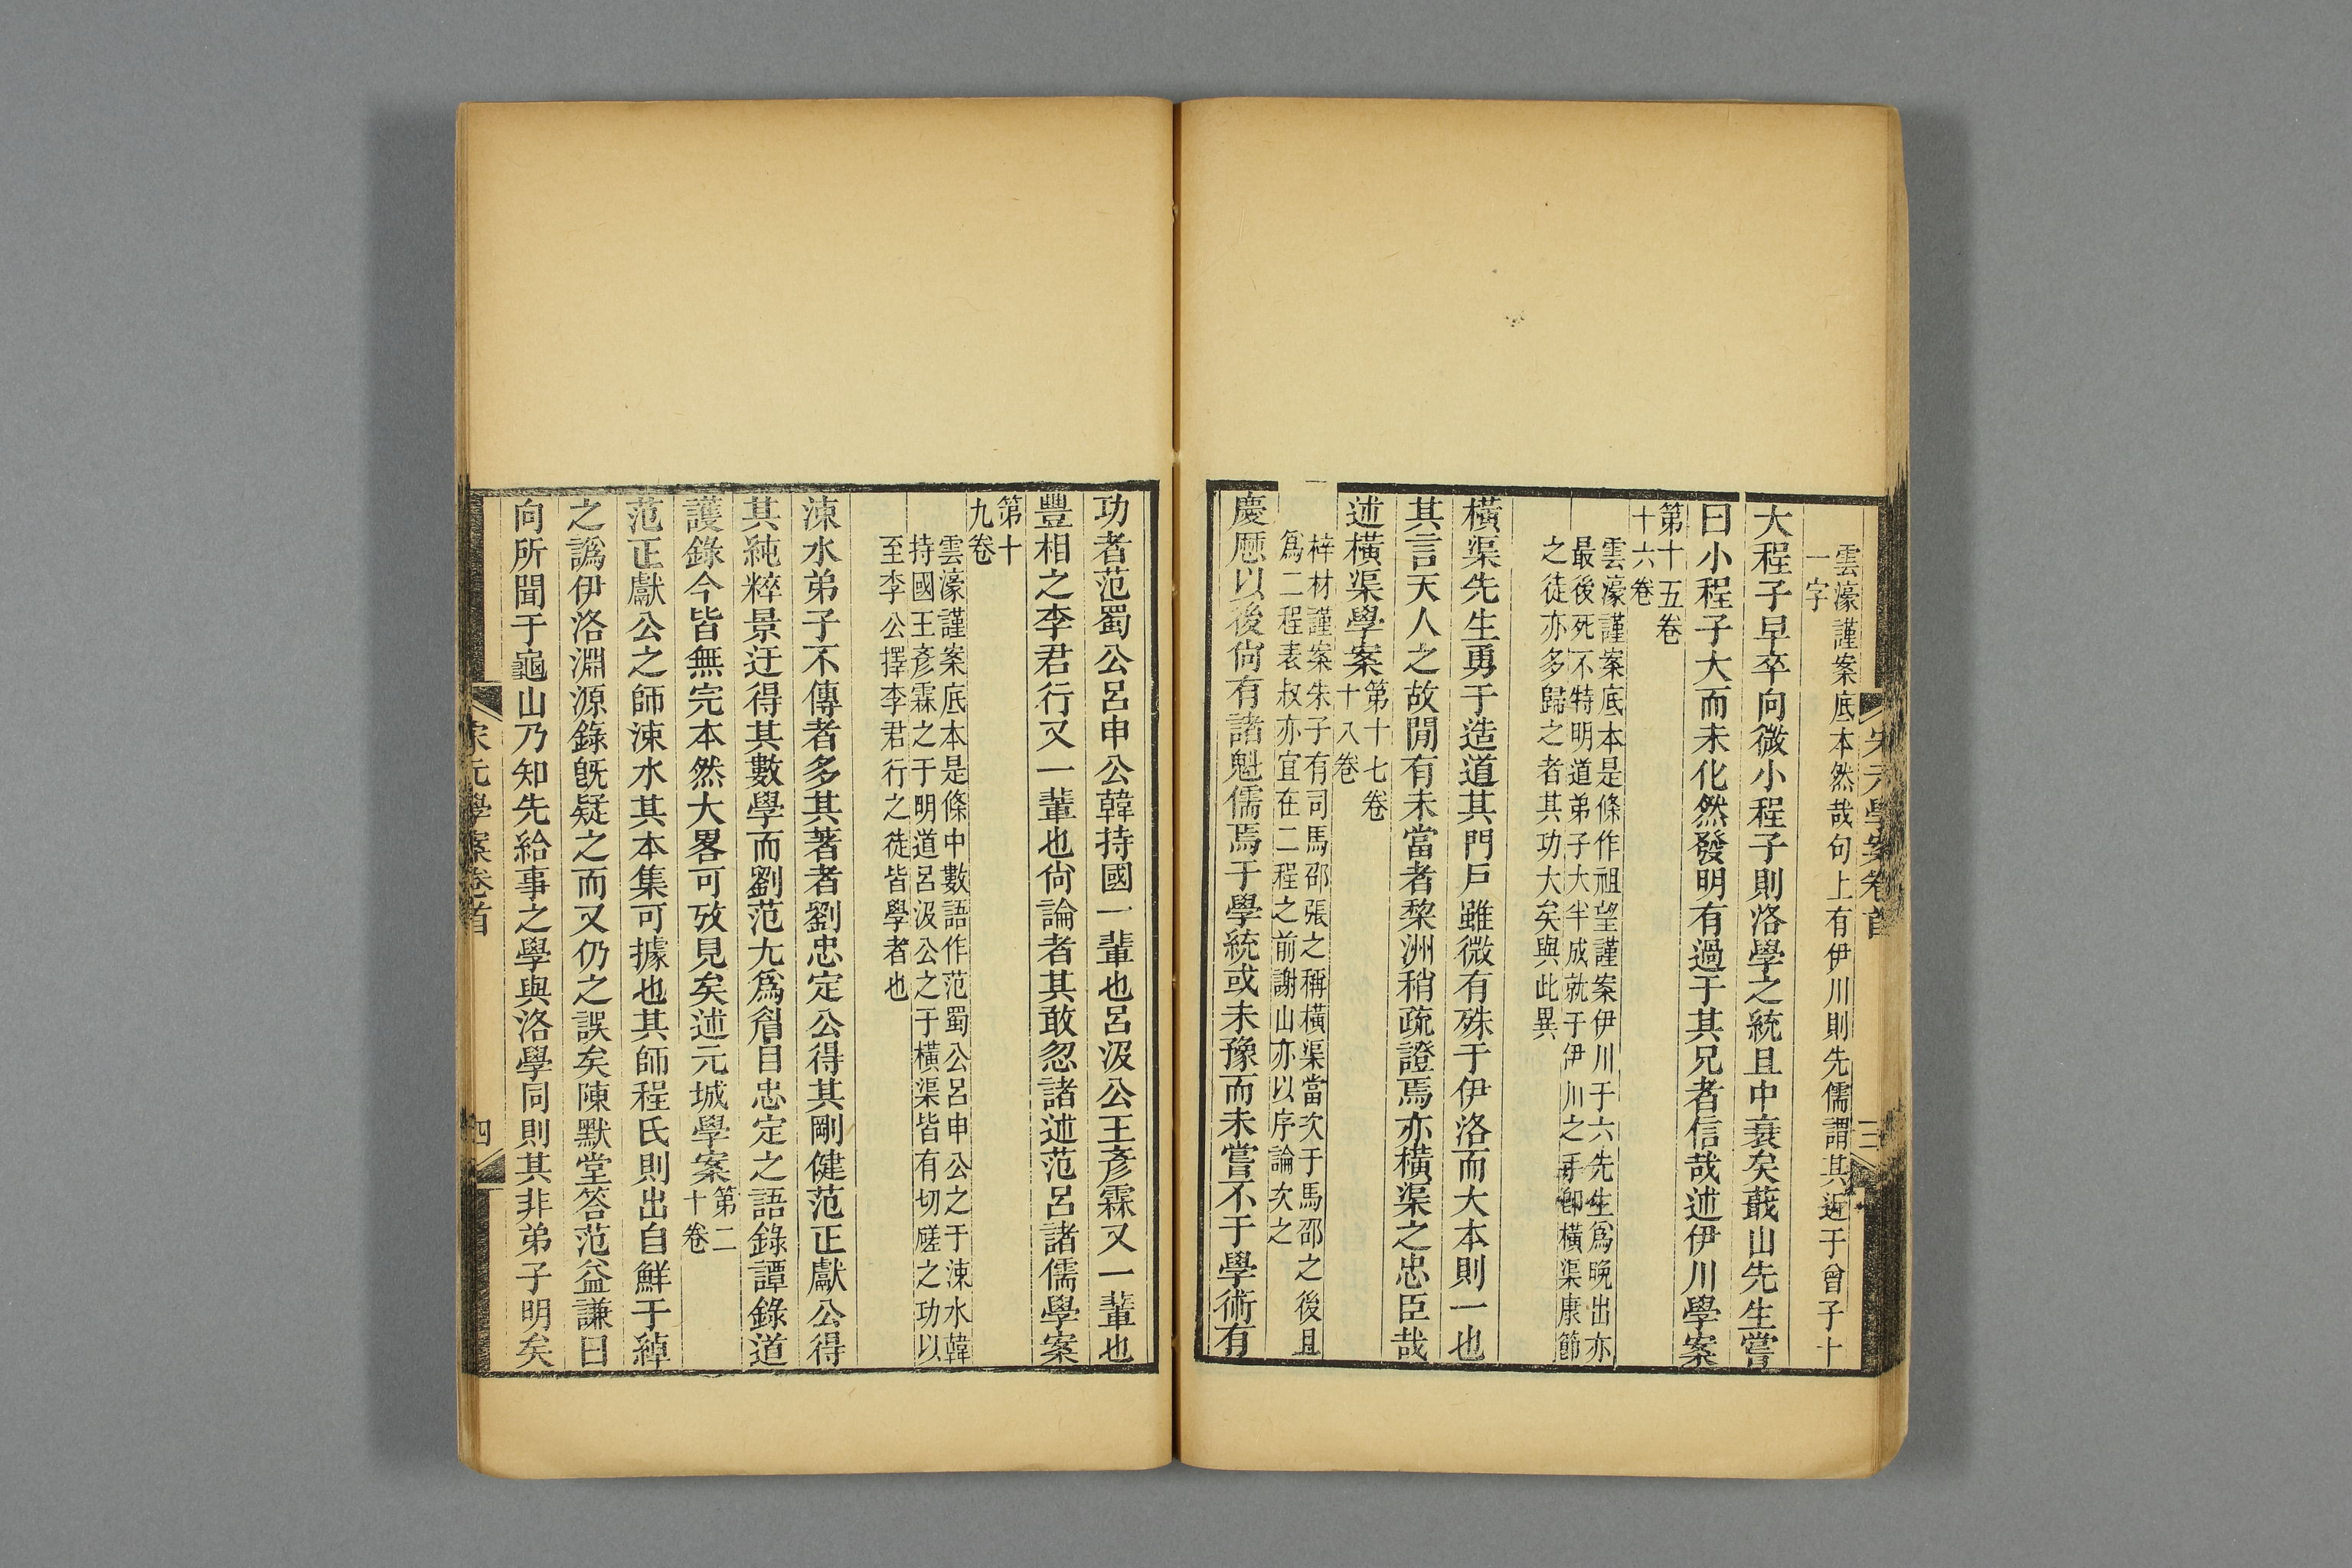 宋元學案卷首
三
雲濠謹案底本然哉句上有伊川則先儒謂其近于曾子十
一字
大程子早卒向微小程子則洛學之統且中衰矣蕺山先生嘗
曰小程子大而未化然發明有過于其兄者信哉述伊川學案
第十五卷
十六卷
雲濠謹案底本是條作祖望謹案伊川于六先生爲晚出亦
最後死不特明道弟子大半成就于伊川之手卽橫渠康節
之徒亦多歸之者其功大矣與此異
橫渠先生勇于造道其門戶雖微有殊于伊洛而大本則一也
其言天人之故閒有未當者棃洲稍疏證焉亦橫渠之忠臣哉
述橫渠學案
第十七卷
十八卷
梓材謹案朱子有司馬邵張之稱橫渠當次于馬邵之後且
爲二程表叔亦宜在二程之前謝山亦以序論次之
慶厯以後尙有諸魁儒焉于學統或未豫而未嘗不于學術有
功者范蜀公呂申公韓持國一輩也呂汲公王彥霖又一輩也
豐相之李君行又一輩也尙論者其敢忽諸述范呂諸儒學案
第十
九卷
雲濠謹案底本是條中數語作范蜀公呂申公之于涑水韓
持國王彥霖之于明道呂汲公之于橫渠皆有切磋之功以
至李公擇李君行之徒皆學者也
涑水弟子不傳者多其著者劉忠定公得其剛健范正獻公得
其純粹景迂得其數學而劉范尢爲眉目忠定之語錄譚錄道
護錄今皆無完本然大畧可攷見矣述元城學案
第二
十卷
范正獻公之師涑水其本集可據也其師程氏則出自鮮于綽
之譌伊洛淵源錄旣疑之而又仍之誤矣陳默堂答范益謙曰
向所聞于龜山乃知先給事之學與洛學同則其非弟子明矣
宋元學案卷首
四